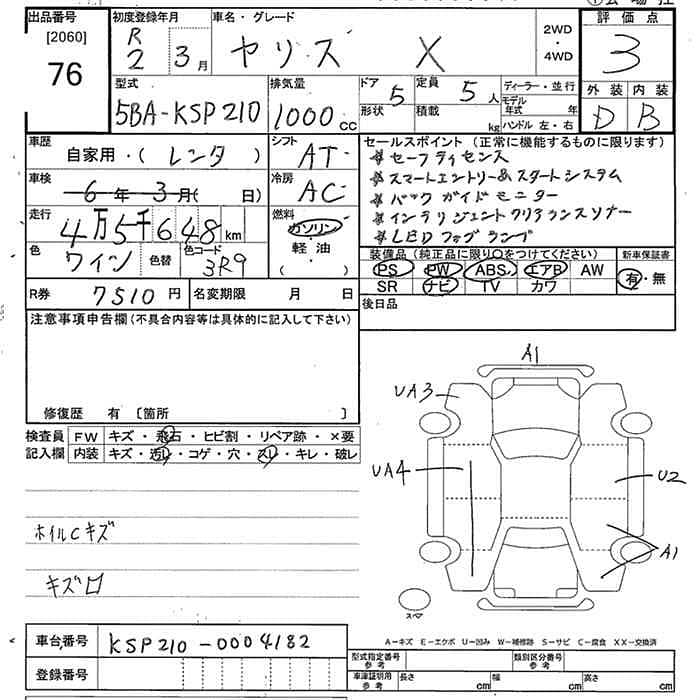 出品番号 初度登録年月 車名・グレード 評価点
[2060] R 2 3月 ヤリス X 2WD・4WD 3
76
型式 排気量 ドア 5 定員 5人 ディーラー・並行 外装 内装
5BA-KSP210 1000cc 形状 積載 kg モデル年式 年 D B
ハンドル 左・右
車歴 シフト セールスポイント (正常に機能するものに限ります)
自家用・(レンタ) AT ＊セーフティセンス
車検 冷房 ＊スマートエントリー&スタートシステム
6年3月( 日) AC ＊バックガイドモニター
走行 燃料 ＊インテリジェントクリアランスソナー
4万5千648km ガソリン ＊LEDフォグランプ
色 色替 色コード 軽・油
ワイン 3R9 ( )
装備品 (純正品に限り○をつけてください) 新車保証書
PS PW ABS エアB AW 有・無
SR ナビ TV カワ
R券 7510円 名変期限 月 日 後日品
注意事項申告欄(不具合内容等は具体的に記入して下さい)
修復歴 有 〔箇所 〕
検査員 FW キズ・飛石・ヒビ割・リペア跡・×要
記入欄 内装 キズ・汚レ・コゲ・穴・スレ・キレ・破レ
ホイルCキズ
キズロ
A1
UA3
UA4
U2
A1
スペア
A－キズ E－エクボ U－凹み W－補修跡 S－サビ C－腐食 XX－交換済
車台番号 KSP210-0004182
登録番号
型式指定番号 参考 類別区分番号 参考
車庫証明用 参考 長さ cm 幅 cm 高さ cm